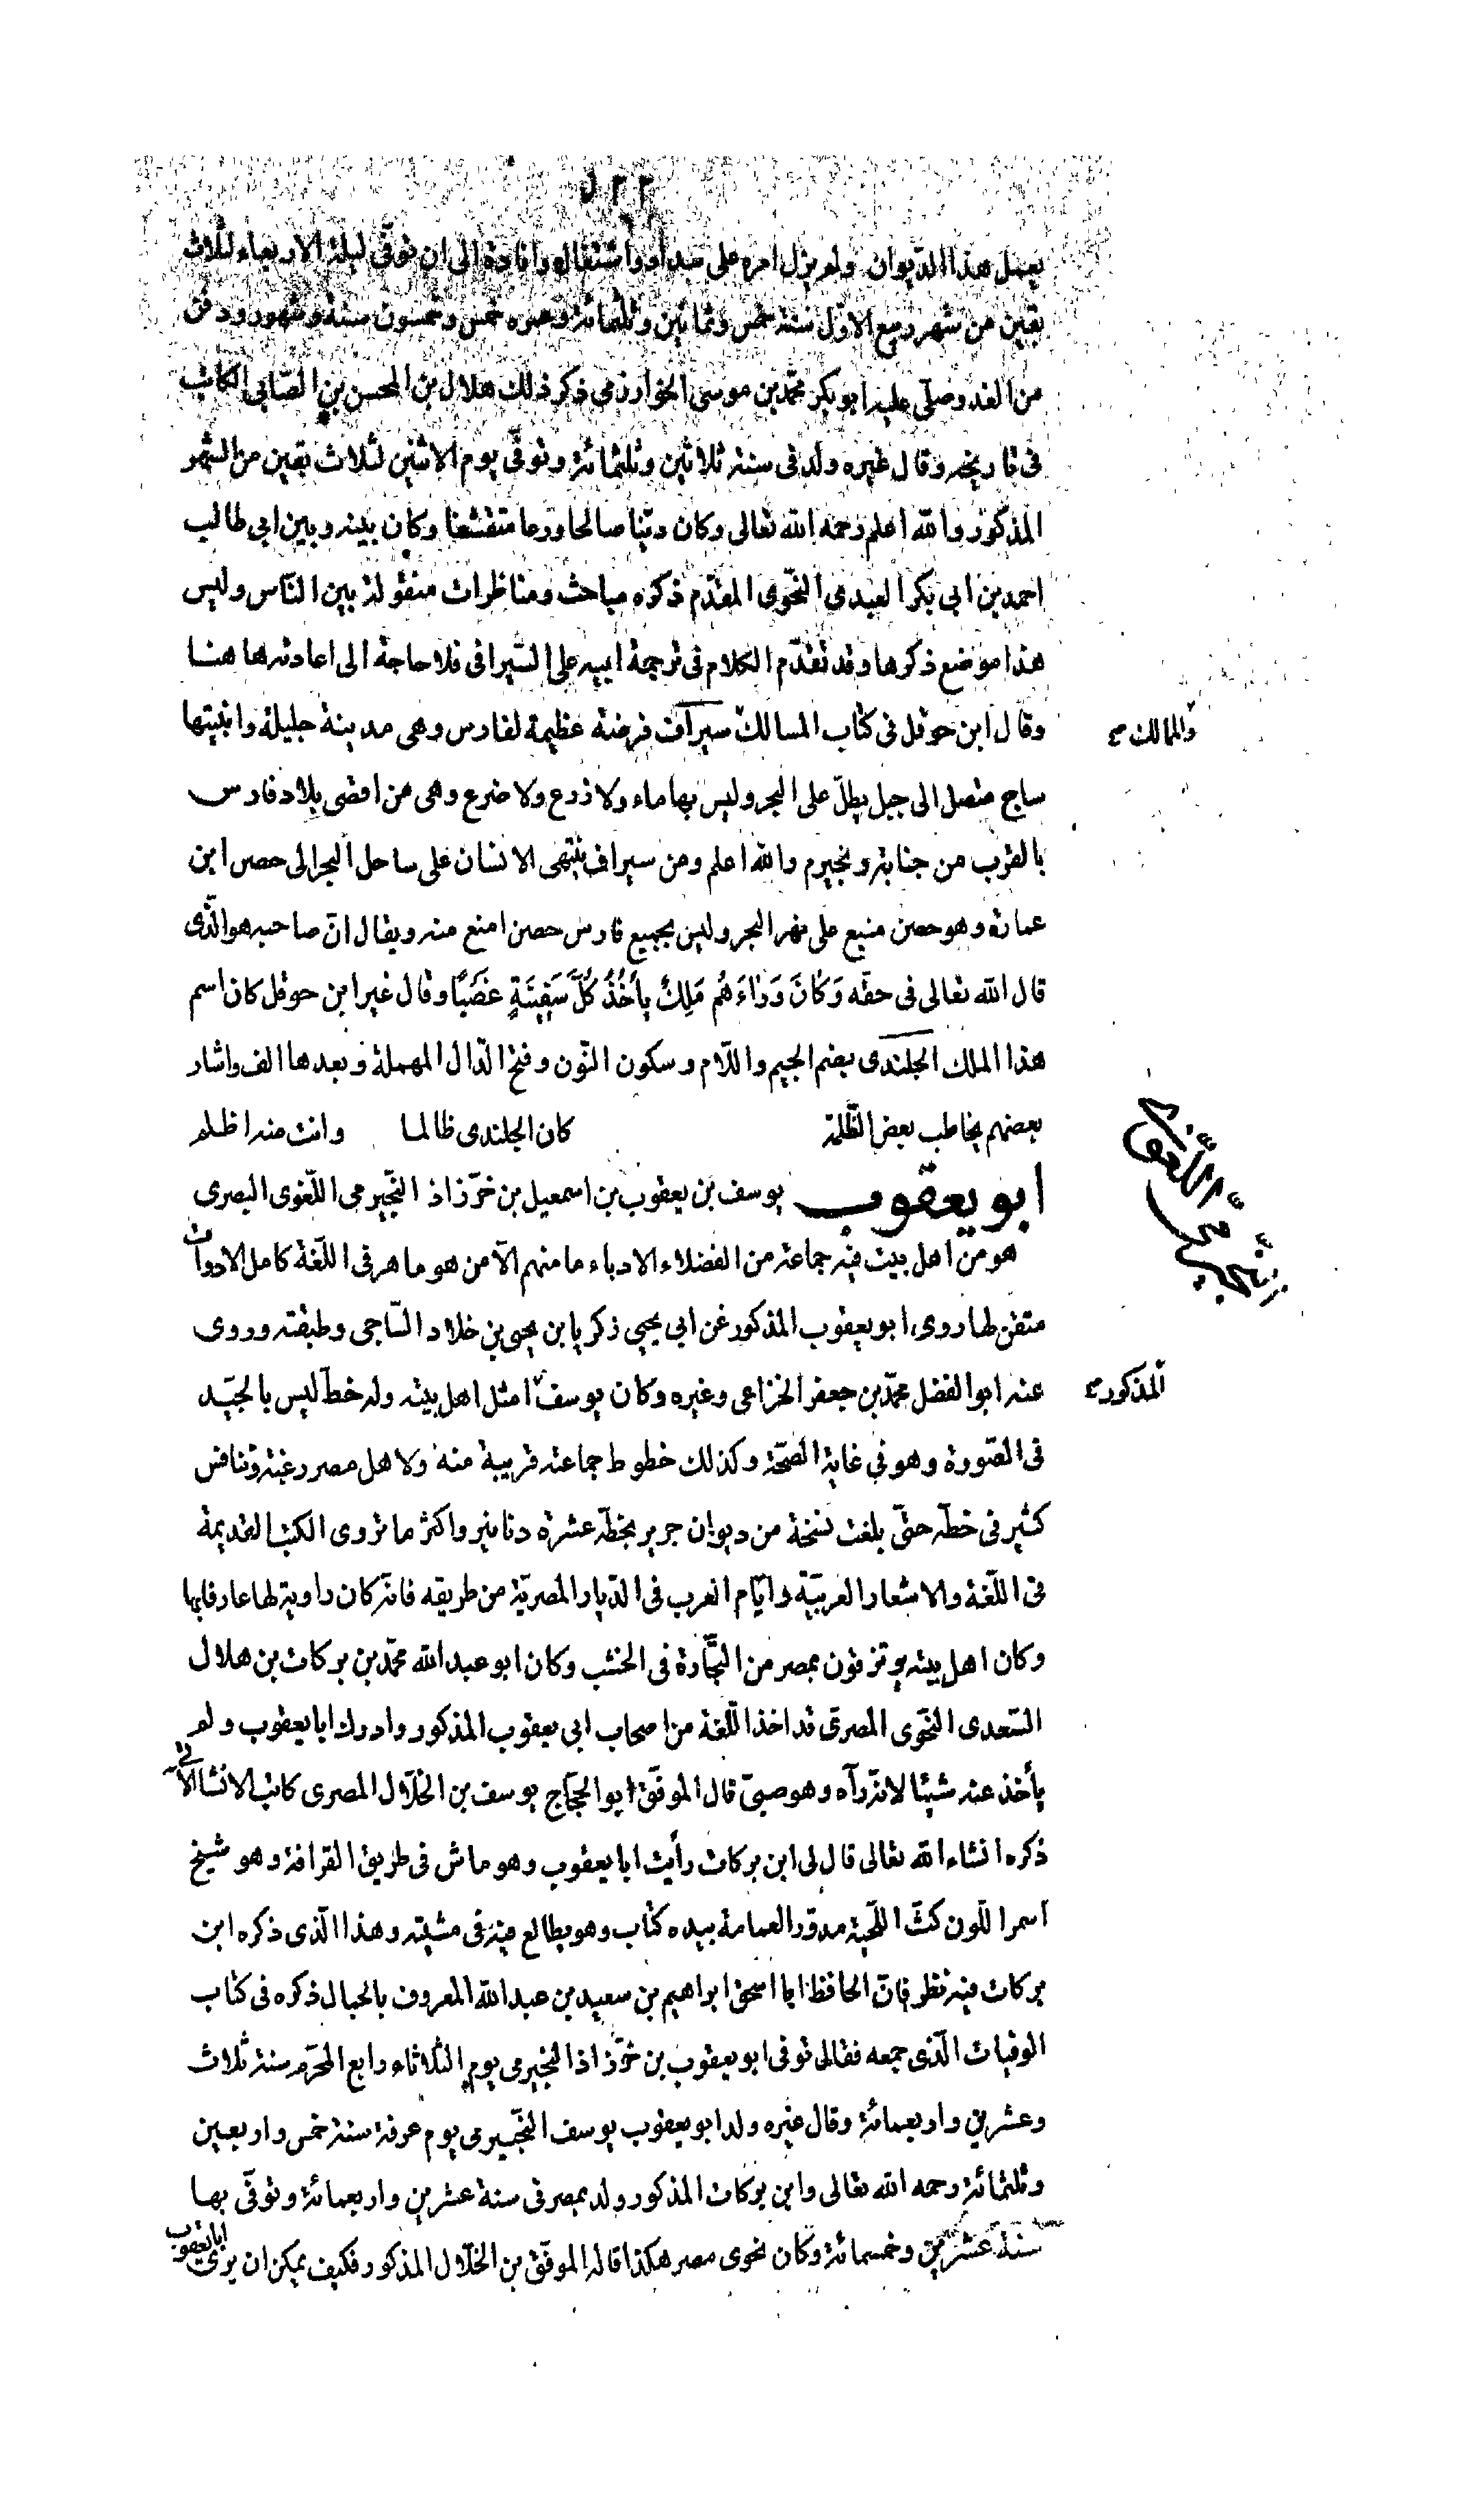 يعمل هذا الديوان ولم يزل امره على سداد واشتغال وافادة الى ان توفّى ليلة الاربعاء لثلاث
بقين من شهر ربيع الاوّل سنة خمس وثمانين وثلثمائة وعمره خمس وخمسون سنة وشهور ودفن
من الغد وصلّى عليه ابو بكر محمّد بن موسى الخوارزمى ذكر ذلك هلال بن المحسن بن الصّابى الكاتب
فى تاريخه وقال غيره ولد فى سنة ثلاثين وثلثمائة وتوفّى يوم الاثنين لثلاث بقين من الشهر
المذكور والله اعلم رحمه الله تعالى وكان ديّنا صالحا ورعا متقشفا وكان بينه وبين ابى طالب
احمد بن ابى بكر العبدى النّحوى المقدّم ذكره مباحث ومناظرات منقولة بين النّاس وليس
هذا موضع ذكرها وقد تقدّم الكلام فى ترجمة ابيه على السّيرافى فلا حاجة الى اعادته هاهنا
وقال ابن حوقل فى كتاب المسالك سيراف فرضة عظيمة لفارس وهى مدينة جليلة وابنيتها
والممالك صح
ساج متصل الى جبل يطلّ على البحر وليس بها ماء ولا زرع ولا ضرع وهى من اغنى بلاد فارس
بالقرب من جنابة ونجيرم والله اعلم ومن سيراف ينتهى الانسان على ساحل البحر الى حصن ابن
عمارة وهو حصن منيع على نهر البحر وليس بجميع فارس حصن امنع منه ويقال انّ صاحبه هو الّذى
قال الله تعالى فى حقّه وَكَانَ وَرَاءَهُم مَلِكٌ يَأخُذُ كُلَّ سَفِينَةٍ غَصبًا وقال غير ابن حوقل كان اسم
هذا الملك الجلندى بضم الجيم واللّام وسكون النّون وفتح الدّال المهملة وبعدها الف واشار
بعضهم يخاطب بعض الظّلمة كان الجلندى ظالما وانت منه اظلم
ابو يعقوب يوسف بن يعقوب بن اسمعيل بن خرّزاذ النّجيرمى اللّغوى البصرى
هو من اهل بيت فيه جماعة من الفضلاء الادباء ما منهم الّا من هو ماهر فى اللّغة كامل الادوات
متقن لها روى ابو يعقوب المذكور عن ابى يحيى زكريا بن يحيى بن خلاد السّاجى وطبقته وروى
عنه ابو الفضل محمّد بن جعفر الخزاعى وغيره وكان يوسف امثل اهل بيته وله خطّ ليس بالجيّد
المذكور صح
فى الصّورة وهو فى غاية الصّحّة وكذلك خطوط جماعة قريبة منه ولاهل مصر رغبة وتنافس
كثير فى خطّه حتّى بلغت نسخة من ديوان جرير بخطّه عشرة دنانير واكثر ما تروى الكتب القديمة
فى اللّغة والاشعار العربيّة وايّام العرب فى الديار المصريّة من طريقه فانّه كان راوية لها عارفا بها
وكان اهل بيته يرتزقون بمصر من التّجارة فى الخشب وكان ابو عبد الله محمّد بن بركات بن هلال
السّعدى النّحوى المصرى قد اخذ اللّغة من اصحاب ابى يعقوب المذكور وادرك ابا يعقوب ولم
يأخذ عنه شيئا لانّه رآه وهو صبىّ قال الموفّق ابو الحجّاج يوسف بن الخلّال المصرى كاتب الانشا الآتى
ذكره انشاء الله تعالى قال لى ابن بركات رأيت ابا يعقوب وهو ماش فى طريق القرافة وهو شيخ
اسمر اللّون كثّ اللّحية مدوّر العمامة بيده كتاب وهو يطالع فيه فى مشيته وهذا الّذى ذكره ابن
بركات فيه نظر فانّ الحافظ ابا اسحق ابراهيم بن سعيد بن عبد الله المعروف بالحبال ذكره فى كتاب
الوفيات الّذى جمعه فقال توفى ابو يعقوب بن خرّزاذ النجيرمى يوم الثّلاثاء رابع المحرّم سنة ثلاث
وعشرين واربعمائة وقال غيره ولد ابو يعقوب يوسف النّجيرمى يوم عرفة سنة خمس واربعين
وثلثمائة رحمه الله تعالى وابن بركات المذكور ولد بمصر فى سنة عشرين واربعمائة وتوفّى بها
سنة عشرين وخمسمائة وكان نحوى مصر هكذا قاله الموفّق بن الخلّال المذكور فكيف يمكن ان يرى ابا يعقوب